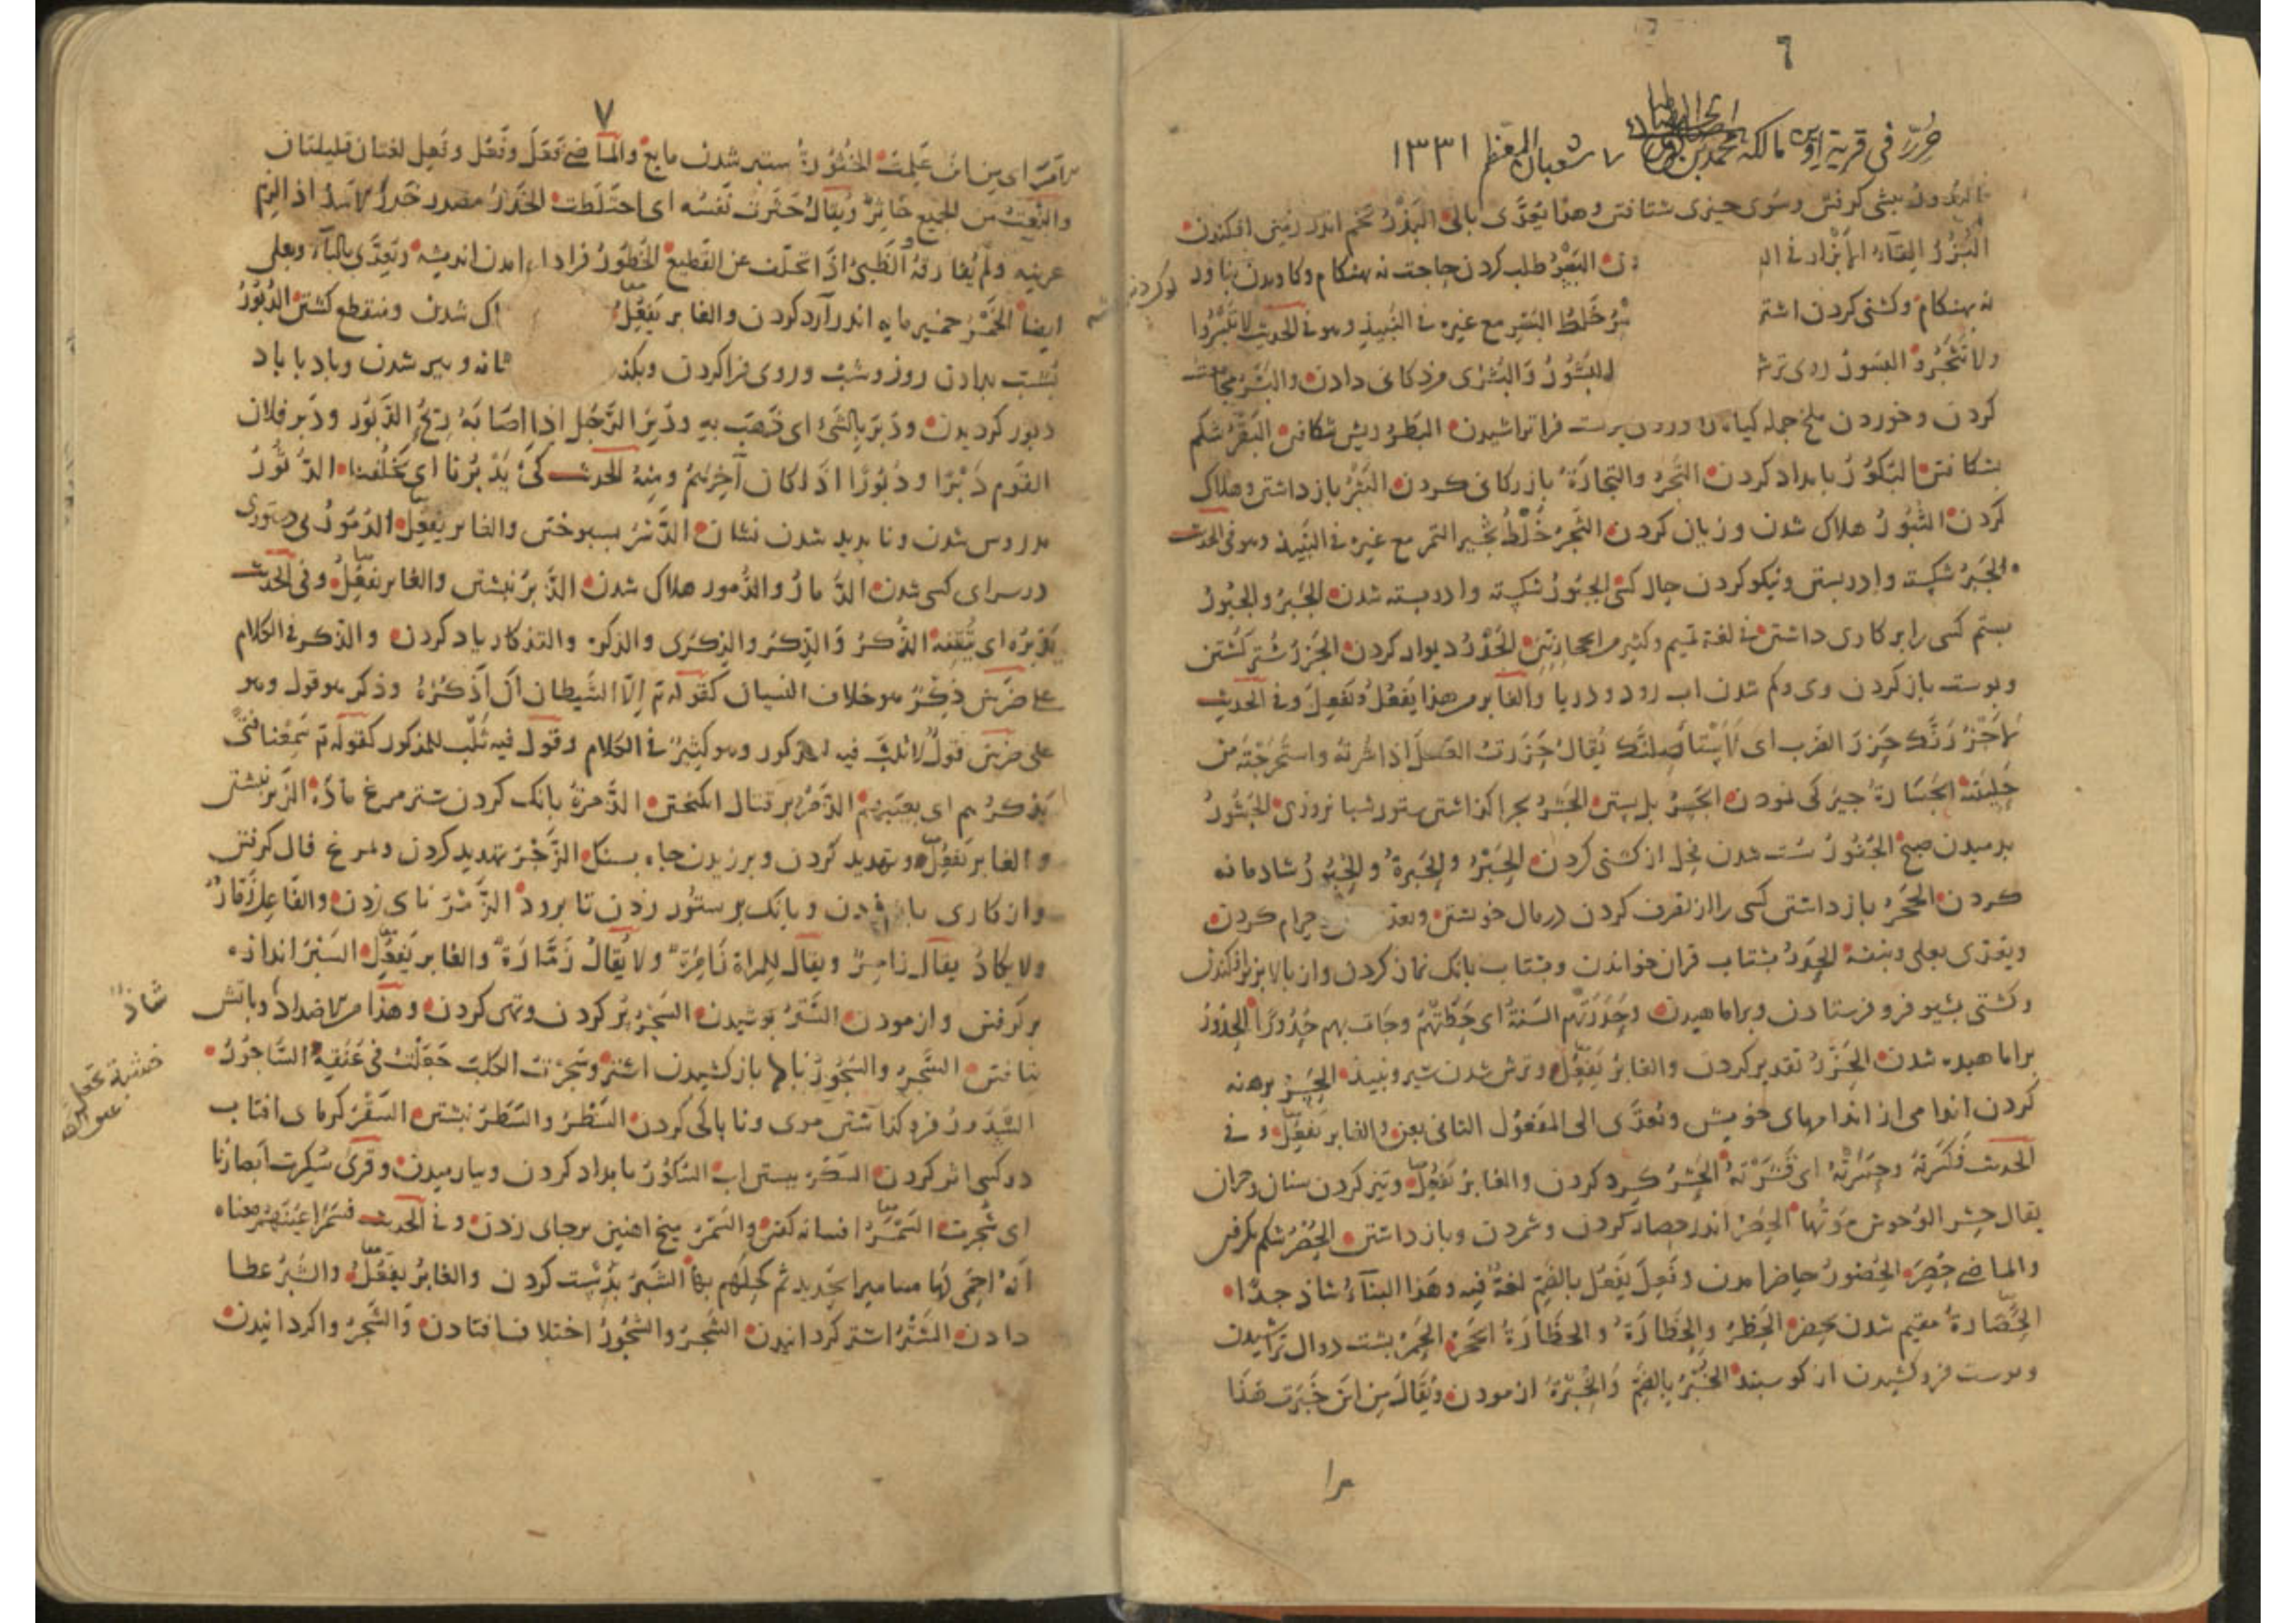 ٦
حُرّر فی قریة اوین مالکه محمد بن ٧ شعبان المعظم ١٣٣١
البدور پیشی کرفتن وسوی چیزی شتافتن وهذا یُعدّی بالی البَذْرُ تخم اندر زمین افکندن
البَزْرُ القاء الابزار فی ال البَسْرُ طلب کردن حاجت نه بهنکام وکاویدن بناور
نه بهنکام وکشنی کردن اشتر خَلطُ البُسر مع غیره فی النبیذ وهو فی الحدیث لا تَبْسُروا
ولا تَثْجُروا البسور روی ترش البُشُورُ والبُشْری مژدکانی دادن والبَشْر
کردن وخوردن ملخ جمله کیاه پوست فرا تراشیدن البَطْرُ ریش شکافتن البَقْرُ شکم
شکافتن البُکُورُ بامداد کردن التَجْرُ والتِجارَةُ بازرکانی کردن الثَبْرُ باز داشتن وهلاک
کردن الثُبُورُ هلاک شدن وزیان کردن الثَجْرُ خَلْطُ ثَجیر التمر مع غیره فی النَبیذ وهو فی الحدیث
الجَبْرُ شکسته وادر بستن ونیکو کردن حال کسی الجُبُورُ شکسته وادر بسته شدن الجَبْرُ والجُبُورُ
بستم کسی را بر کاری داشتن فی لغة تمیم وکثیر من الحجازیین الجَدْرُ دیوار کردن الجَزْرُ شتر کشتن
وپوست باز کردن وی وکم شدن اب رود ودریا والغابر من هذا یَفْعُلُ ویَفْعِلُ وفی الحدیث
لَاَجْزُرَنَّکَ جَزْرَ الضَرَب ای لَاَسْتَأصِلَنَّکَ یُقالُ جَزَرْتُ العَسَلَ اِذا شُرْتَهُ واستَخْرَجْتَهُ من
خَلِیَّته الجَسارَةُ چیرکی نمودن الجَسْرُ پل بستن الجَشْرُ بچرا کذاشتن ستور شبانروزی الجُشُورُ
بردمیدن صبح الجُفُورُ سُست شدن فحل از کشنی کردن الحَبْرُ والحَبْرَةُ والحُبُورُ شادمانه
کردن الحَجْرُ باز داشتن کسی را از تصرف کردن در مال خویشتن ویعد حرام کردن
ویُعَدّی بعلی وبنفسه الحَدْرُ بشتاب قران خواندن وبشتاب بانک نماز کردن واز بالا بزیر افکندن
وکشتی بشیو فرو فرستادن وبراماهیدن وحَدَرَتْهُم السَنَةُ ای حَطَّتْهُمْ وجَاءت بهم حُدُورًا الحُدُورُ
براماهیده شدن الحَزْرُ تقدیر کردن والغابرُ یَفْعِلُ وترش شدن شیر ونبیذ الحَسْرُ برهنه
کردن اندامی از اندامهای خویش وتُعَدّی الی المَفعُول الثانی بعن والغابر یَفْعِلُ وفی
الحدیث فَکَسَرْتُهُ وحَسَرْتُهُ ای قَشَرْتَهُ الحَشْرُ کرد کردن والغابرُ یَفْعِلُ وتیز کردن سنان وجزان
یقال حُشِر الوُحوش مَوْتُها الحَصْرُ اندر حصار کردن وشمردن وباز داشتن الحُصْرُ شکم بکرفتن
والماضی حُصِرَ الحُضورُ حاضر امدن وفَعِلَ یَفْعُلُ بالضَمّ لغةٌ فیه وهَذا البناءُ شاذ جدًّا
الحَضارَةُ مقیم شدن بحضر الحَظْرُ والحِظارَةُ والحَظارَةُ الحَجْرُ الحَمْرُ پشت دوال تراشیدن
وپوست فرو کشیدن از کوسبند الخُبْرُ بالضَمّ والخِبْرَةُ ازمودن ویُقَالُ مِن اینَ خَبَرْت هَذَا
٧
الامْرَ ای مِن اینَ عَلِمْتَ الخُثُورَةُ ستبر شدن مایع والماضی فَعَلَ وفَعُلَ وفَعِل لغتان قلیلتان
والنَعْتُ من الجمیع خَاثِرٌ ویُقالُ خَثَرَتْ نَفْسُه ای اختَلَطَت الخَدْرُ مصدر خَدَرَ الاَسَدُ اذا لزم
عرینه ولم یُفارقهُ والظَبْیُ اِذَا تَخَلّفَ عن القَطیع الخُطُورُ فرا دل امدن اندیشه وتُعَدّی بالباء وبعلی
ایضا الخَمْرُ خمیرمایه اندر آرد کردن والغابر یَفْعِلُ اک شدن ومنقطع کشتن الدُبُورُ
پشت بدادن روز وشب وروی فرا کردن وبکذ شانه وپیر شدن وباد با باد
دبور کردیدن ودَبَرَ بالشَیْءِ ای ذَهَبَ بِهِ ودُبِرَ الرَجُل اِذا اصَابَهُ رِیحُ الدَبُور ودَبَر فلان
القَوم دَبْرًا ودُبُورًا اذا کان آخِرَهُمْ ومِنْهُ الحدیث کَیْ یَدْبُرَنا ای یَخْلُفنا الدُثُورُ
مدروس شدن وناپدید شدن نشان الدَسْرُ بسپوختن والغابر یَفْعِلُ الدُمُورُ بی دستوری
در سرای کسی شدن الدَمارُ والدُمور هلاک شدن الذَبْرُ نبشتن والغابر یَفْعِلُ وفی الحدیث
یَذْبُرُه ای یُتْقِنه الذُّکرُ والذِکرُ والذِکرَی والذکرة والتذکار یاد کردن والذکر فی الکلام
علی ضَرْبَیْن ذِکْرٌ هو خلاف النسیان کَقَوله تم اِلّا الشَّیطان اَنْ اَذْکُرَهُ وذکر هو قول وهو
علی ضربین قَولٌ لا ثَلْبَ فیه للمذکور وهو کثیرٌ فی الکلام وقول فیه ثَلْب للمذکور کقوله تم سَمِعْنا فَتًی
یَذْکُرُهم ای یَعِیبُهُم الذَمْرُ بر قتال انکیختن الزَمْرَةُ بانک کردن شترمرغ مادَه الزَبْر نبشتن
والغابر یَفْعِلُ وتهدید کردن وبرزیدن چاه بسنک الزَجْرُ تهدید کردن ومرغ فال کرفتن
واز کاری باز زدن وبانک بر ستُور زدن تا برود الزَمْرُ نای زدن والفَاعِل زَمّارٌ
ولا یکادُ یقال زامِرٌ ویقال للمراة زَامِرَةٌ ولا یُقالُ زَمّارَةٌ والغابر یَفْعِلُ السَبْرُ اندازه
برکرفتن وازمودن السَتْرُ پوشیدن السَجْرُ پُر کردن وتهی کردن وهذا من الاضداد وباتش
تافتن السَجْرُ والسُجُورُ نا باز کشیدن اشتر وسَجَرْتُ الکلبَ جَعَلْتُ فی عُنُقِهِ السَاجُورُ
السَدْرُ فرو کذاشتن موی وناباکی کردن السَطْرُ والسَطَرُ نبشتن السَقْرُ کرمای افتاب
در کسی اثر کردن السَکْرُ ببستن اب السُکُورُ بیارمیدن وقری سُکِرت ابصارنا
ای سُجِرت السَمَرُ افسانه کفتن والسَمْرُ میخ اهنین بر جای زدن وفی الحدیث فسَمَرَ اعْیُنَهُمْ معناه
اَنَّهُ اَحْمَی لَها مسامیر الحدید ثم کَحَلَهُم بها الشَبْرُ بدِسْت کردن والغابرُ یَفْعِلُ والشَبْرُ عطا
دادن الشَتْرُ اشتر کردانیدن الشَجْرُ والشُجُورُ اختلاف افتادن والشَجْرُ وا کردانیدن
شاذ